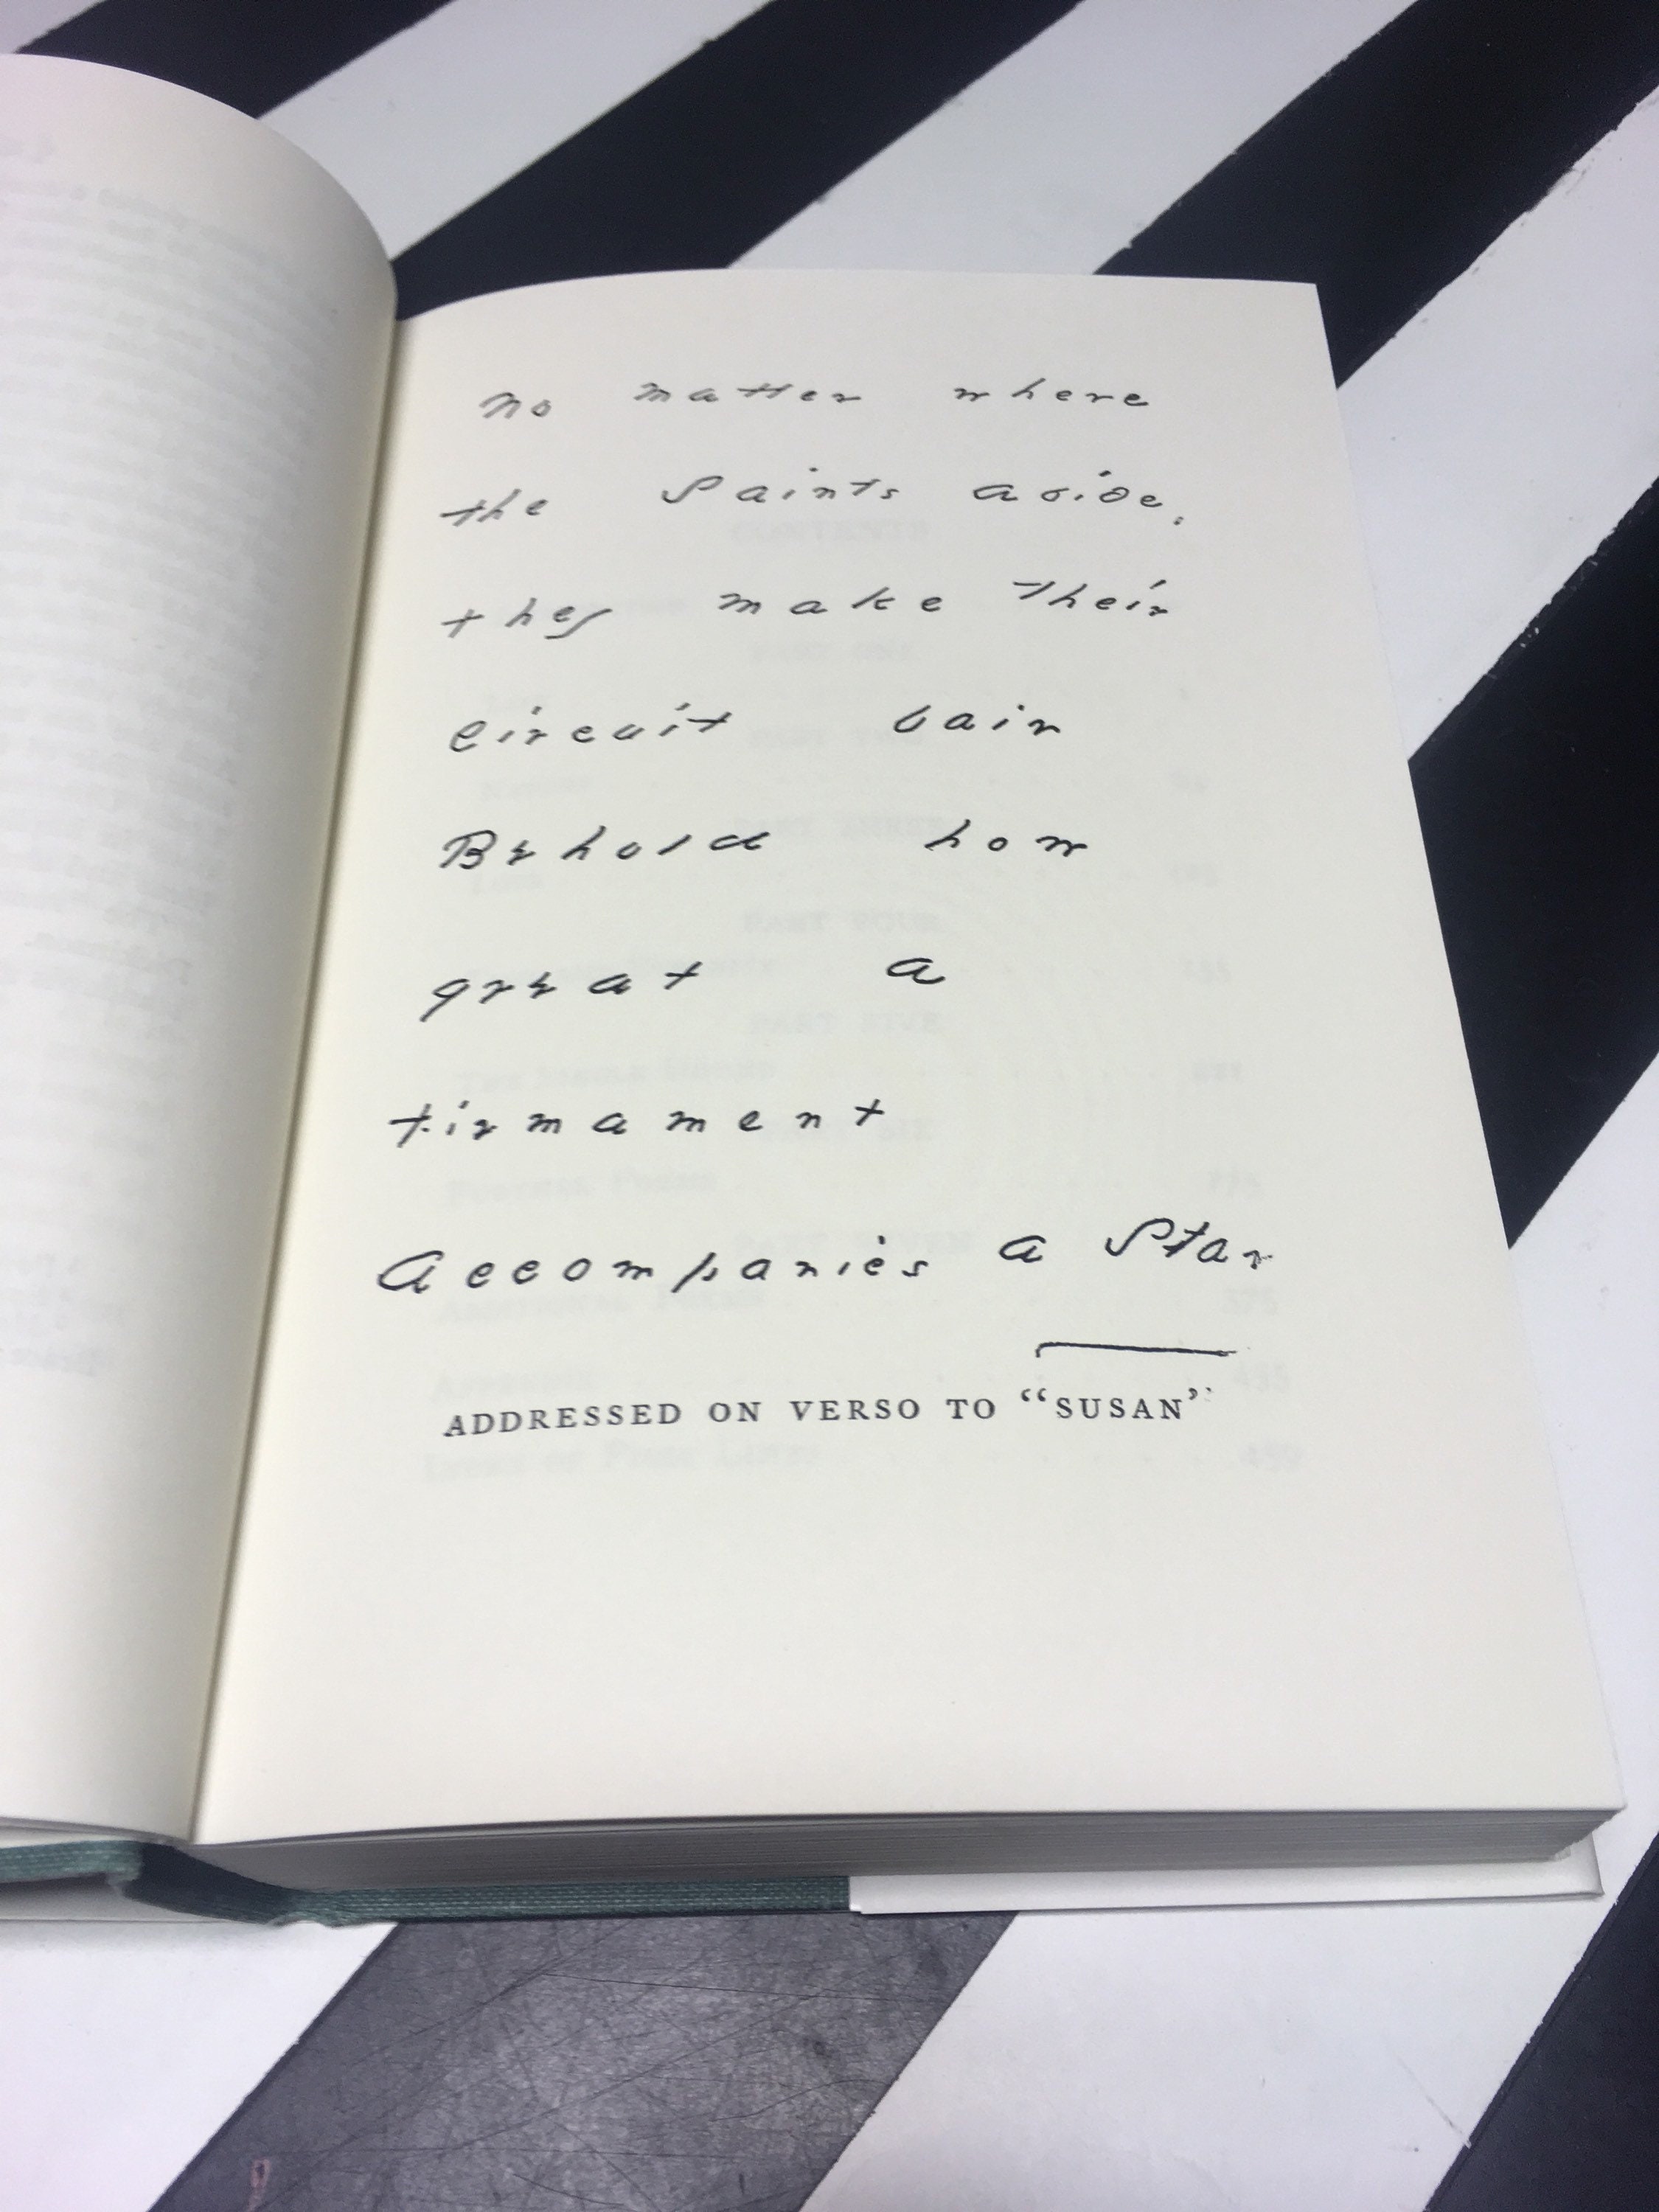 No matter where
the Saints abide,
they make their
Circuit fair
Behold how
great a
firmament
Accompanies a Star
ADDRESSED ON VERSO TO “SUSAN”